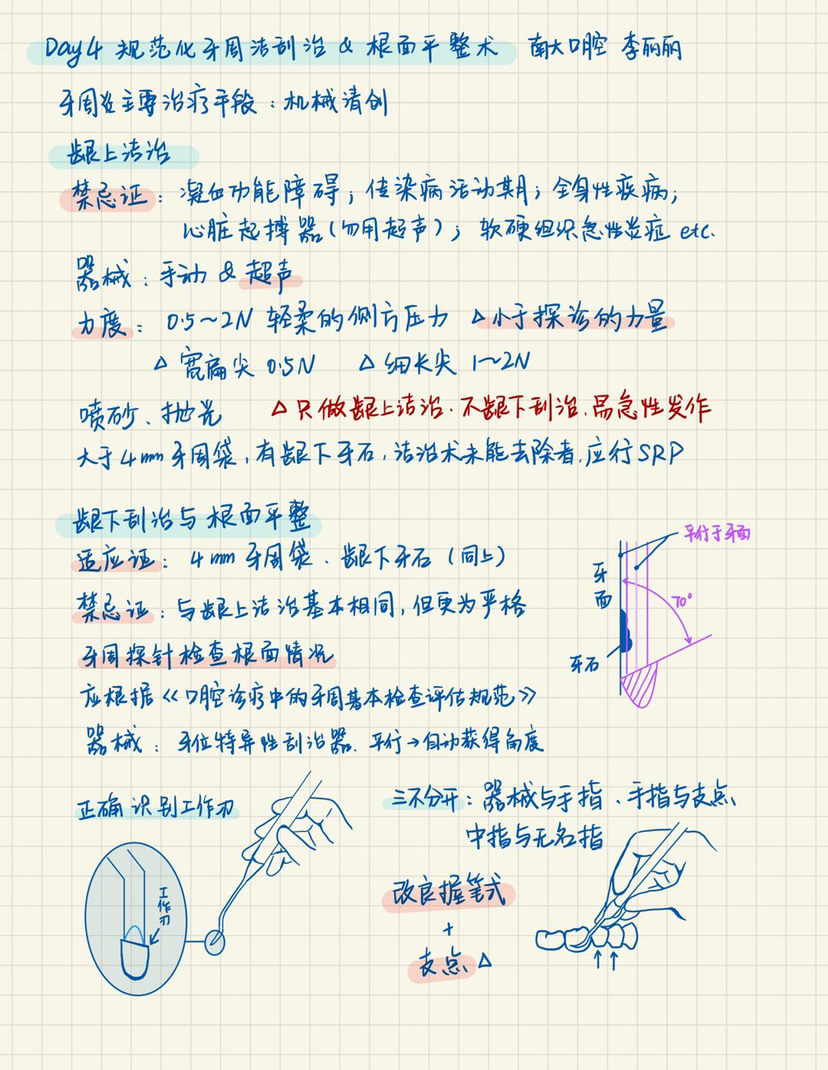 Day4 规范化牙周洁刮治 & 根面平整术 南大口腔 李丽丽
牙周炎主要治疗手段：机械清创
龈上洁治
禁忌证：凝血功能障碍；传染病活动期；全身性疾病；
心脏起搏器（勿用超声）；软硬组织急性炎症 etc.
器械：手动 & 超声
力度：0.5～2N 轻柔的侧方压力 △小于探诊的力量
△ 宽扁尖 0.5N △ 细长尖 1～2N
喷砂、抛光 △只做龈上洁治.不龈下刮治.易急性发作
大于4mm牙周袋,有龈下牙石,洁治术未能去除者.应行SRP
龈下刮治与根面平整
适应证：4mm牙周袋、龈下牙石（同上）
禁忌证：与龈上洁治基本相同,但更为严格
牙周探针检查根面情况
应根据《口腔诊疗中的牙周基本检查评估规范》
器械：牙位特异性刮治器.平行→自动获得角度
平行于牙面
牙面
70°
牙石
正确识别工作刃
工作刃
三不分开：器械与手指、手指与支点、
中指与无名指
改良握笔式
+
支点 △